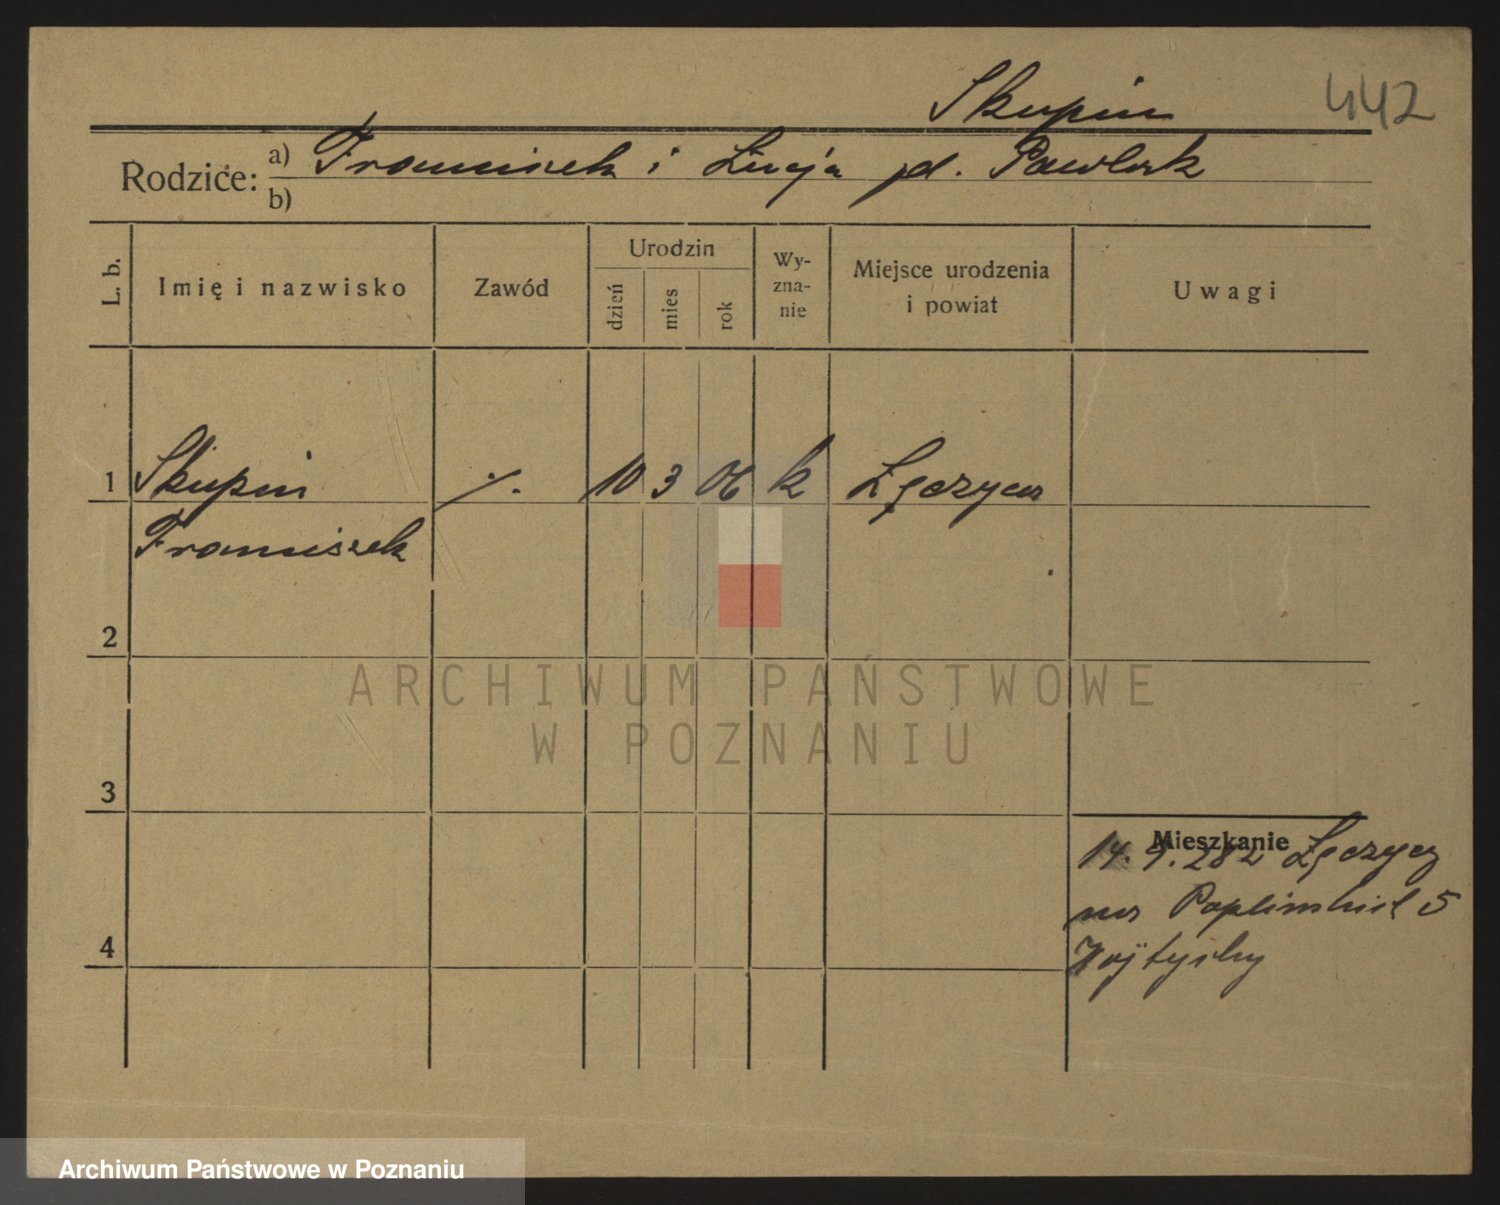 Skupin 442
Rodzice: a) Franciszek i Łucja zd. Pawlak
b)
L. b. Imię i nazwisko Zawód Urodzin dzień mies rok Wy-zna-nie Miejsce urodzenia i powiat Uwagi
1 Skupin ·/. 10 3 06 k Łęczyca
Franciszek
2
ARCHIWUM PAŃSTWOWE
W POZNANIU
3
Mieszkanie
14. 9. Łęczycy
5
4
Archiwum Państwowe w Poznaniu